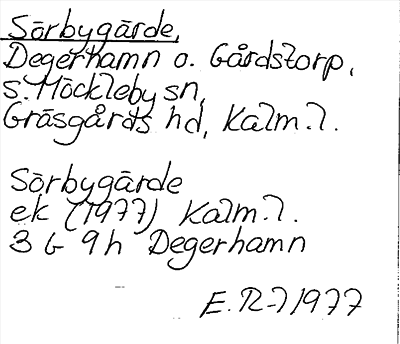 Sörbygärde,
Degerhamn o. Gårdstorp,
S. Möckleby sn,
Gräsgårds hd, Kalm. l.
Sörbygärde
ek (1977) Kalm. l.
3 G 9 h Degerhamn
E. R-l 1977